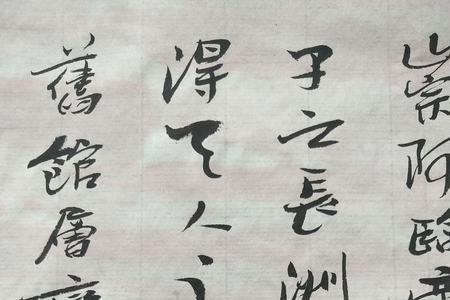 崇阿臨
子之長洲
得天人之
舊館層